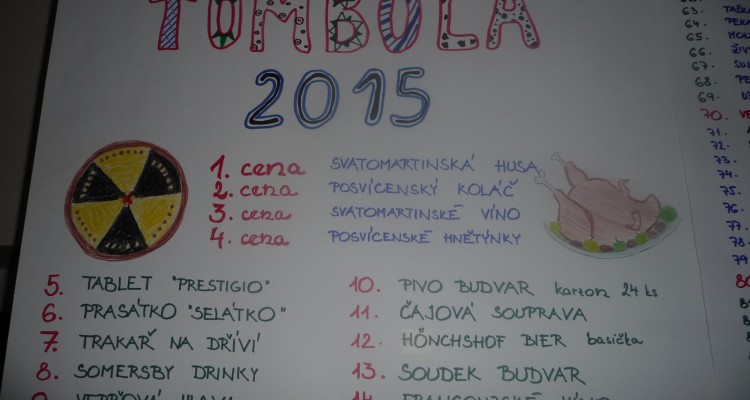 TOMBOLA
2015
1. cena SVATOMARTINSKÁ HUSA
2. cena POSVÍCENSKÝ KOLÁČ
3. cena SVATOMARTINSKÉ VÍNO
4. cena POSVÍCENSKÉ HNĚTÝNKY
5. TABLET "PRESTIGIO"
6. PRASÁTKO "SELÁTKO"
7. TRAKAŘ NA DŘÍVÍ
8. SOMERSBY DRINKY
9. VEPŘOVÁ HLAVA
10. PIVO BUDVAR karton 24 ks
11. ČAJOVÁ SOUPRAVA
12. HÖNCHSHOF BIER basička
13. SOUDEK BUDVAR
14. FRANCOUZSKÉ VÍNO
63.
64.
65.
66.
67.
68.
69.
70.
71.
72.
73.
74.
75.
76.
77.
78.
79